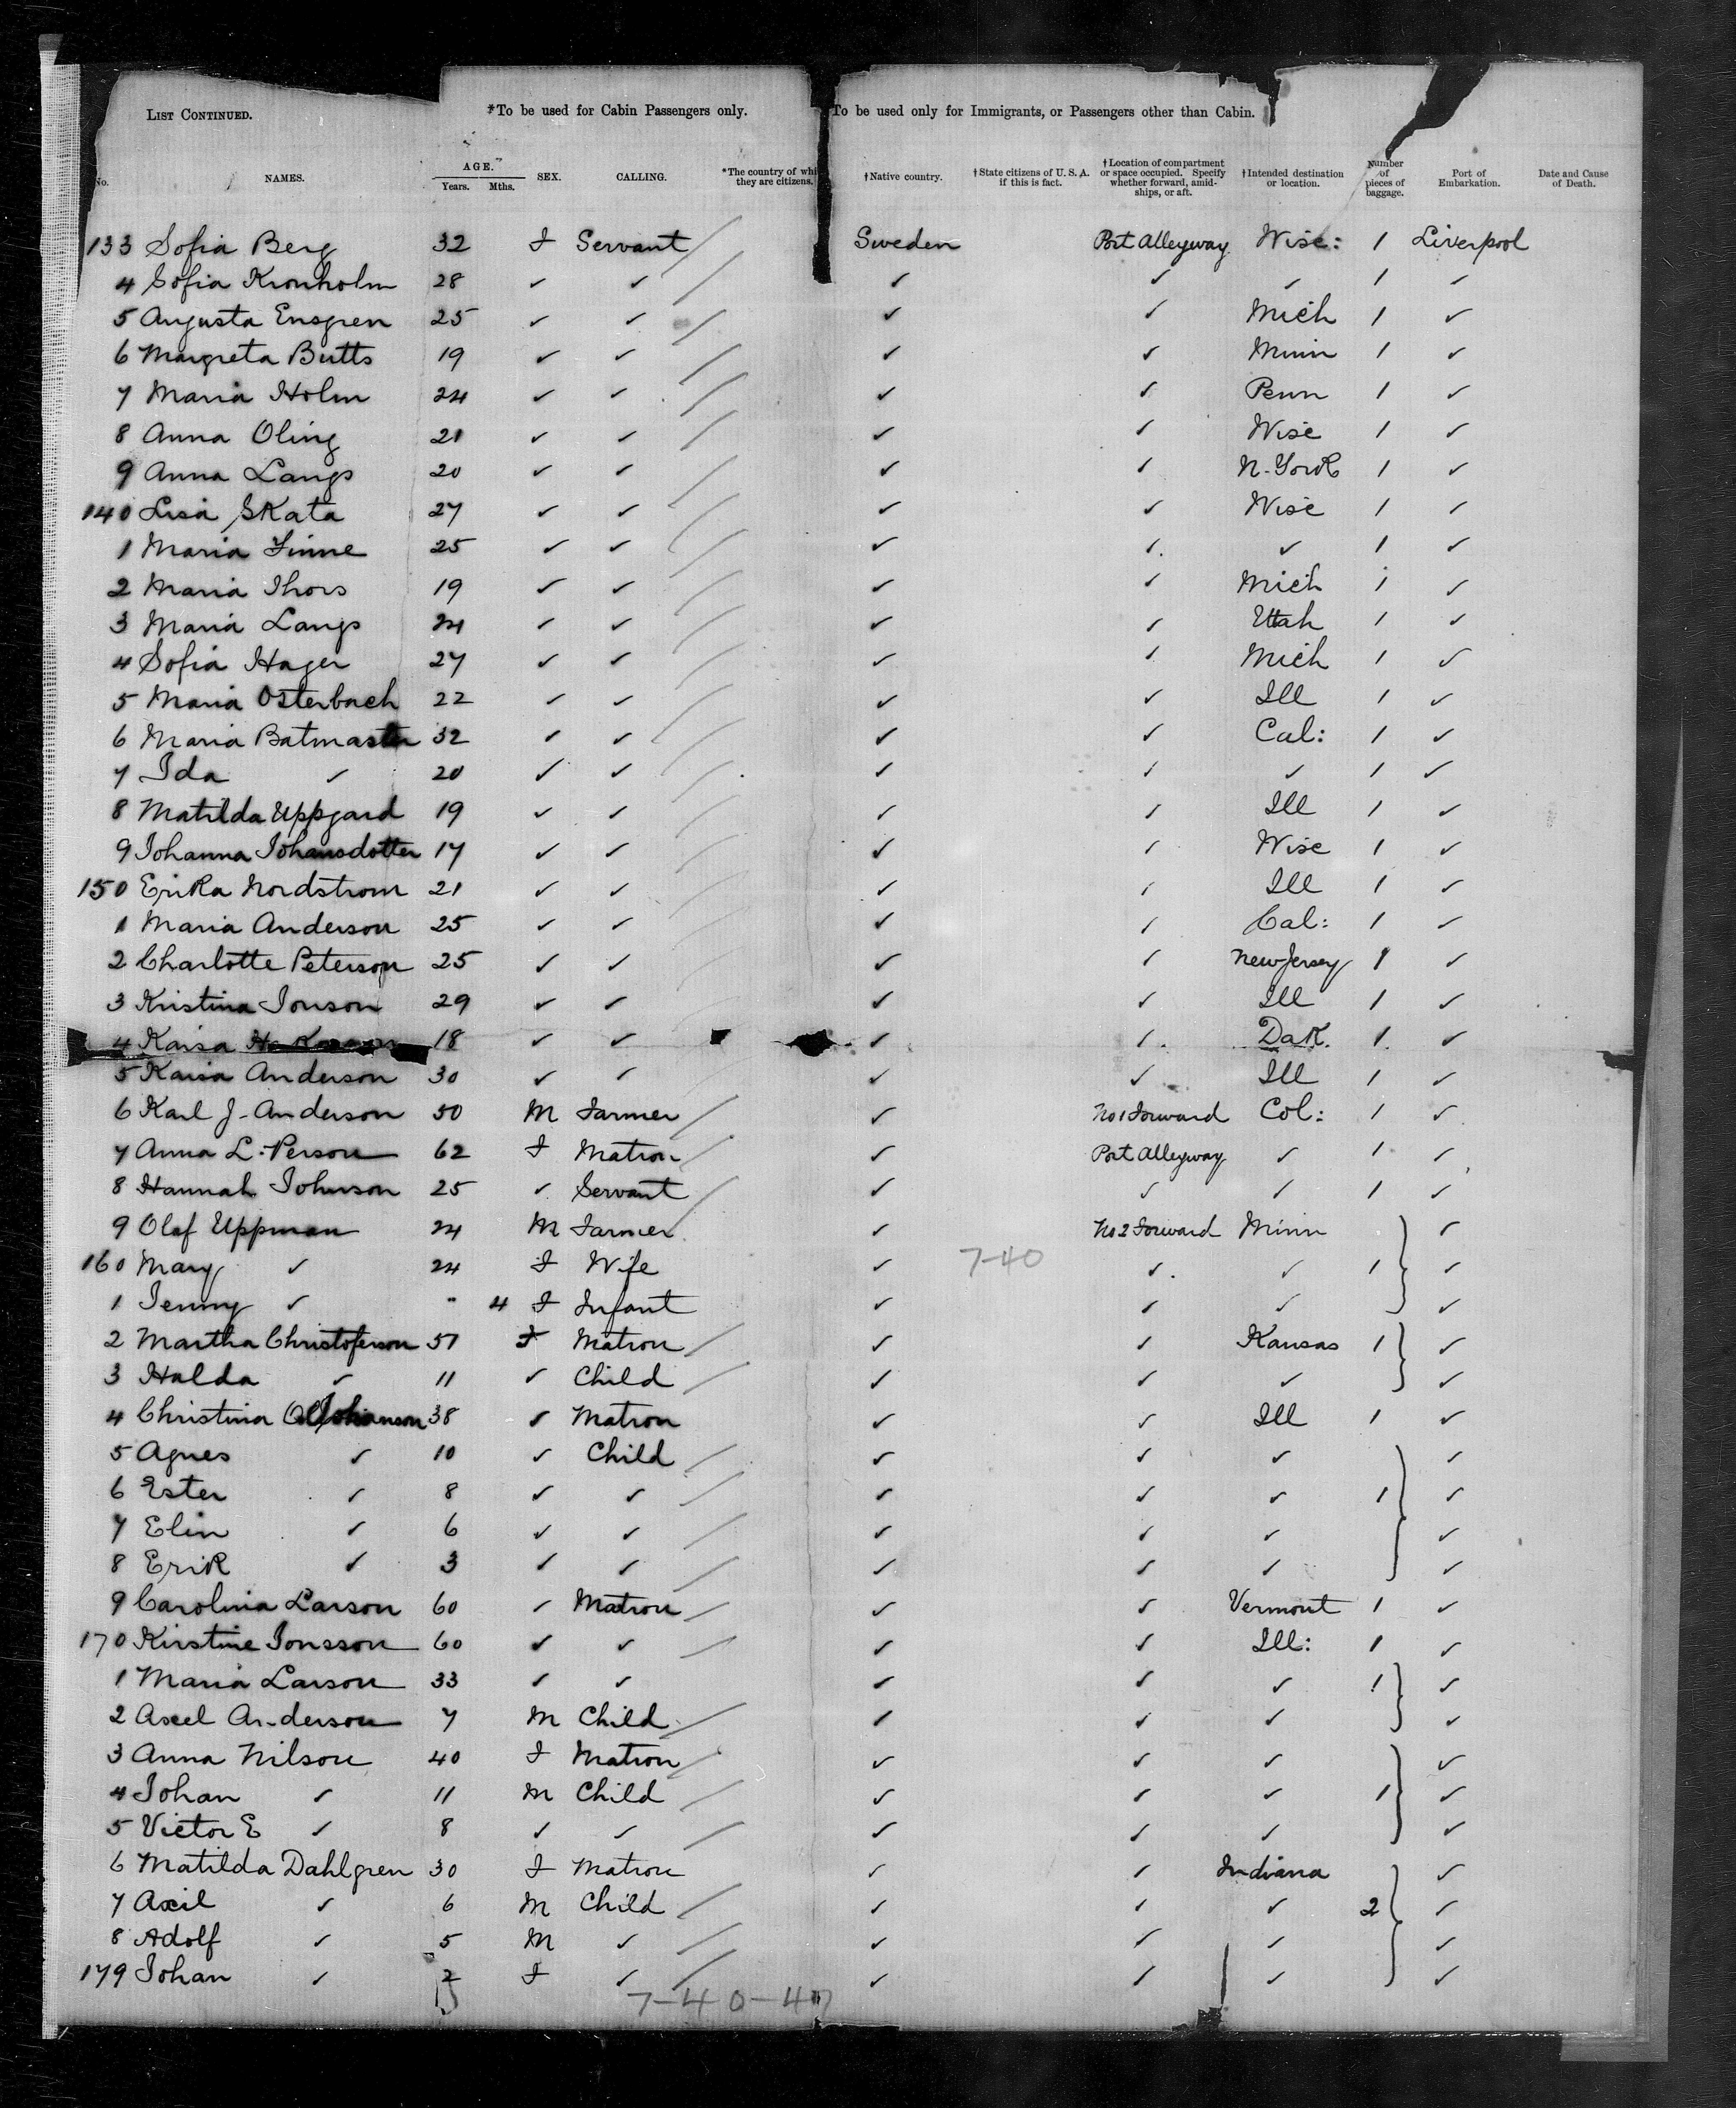 LIST CONTINUED. *To be used for Cabin Passengers only. To be used only for Immigrants, or Passengers other than Cabin.
No. NAMES. AGE. Years. Mths. SEX. CALLING. *The country of whi they are citizens. †Native country. †State citizens of U. S. A. if this is fact. †Location of compartment or space occupied. Specify whether forward, amidships, or aft. †Intended destination or location. Number of pieces of baggage. Port of Embarkation. Date and Cause of Death.
133 Sofia Berg 32 F Servant Sweden Port Alleyway Wisc: 1 Liverpool
4 Sofia Kronholm 28 ✓ ✓ ✓ ✓ ✓ 1 ✓
5 Augusta Ensgren 25 ✓ ✓ ✓ ✓ Mich 1 ✓
6 Margreta Butts 19 ✓ ✓ ✓ ✓ Minn 1 ✓
7 Maria Holm 24 ✓ ✓ ✓ ✓ Penn 1 ✓
8 Anna Oling 21 ✓ ✓ ✓ ✓ Wisc 1 ✓
9 Anna Langs 20 ✓ ✓ ✓ ✓ N-York 1 ✓
140 Lisa Skata 27 ✓ ✓ ✓ ✓ Wisc 1 ✓
1 Maria Finne 25 ✓ ✓ ✓ ✓ ✓ 1 ✓
2 Maria Thors 19 ✓ ✓ ✓ ✓ Mich 1 ✓
3 Maria Langs 24 ✓ ✓ ✓ ✓ Uttah 1 ✓
4 Sofia Hager 27 ✓ ✓ ✓ ✓ Mich 1 ✓
5 Maria Osterbach 22 ✓ ✓ ✓ ✓ Ill 1 ✓
6 Maria Batmaster 32 ✓ ✓ ✓ ✓ Cal: 1 ✓
7 Ida ✓ 20 ✓ ✓ ✓ ✓ ✓ 1 ✓
8 Matilda Uppgard 19 ✓ ✓ ✓ ✓ Ill 1 ✓
9 Johanna Johansdotter 17 ✓ ✓ ✓ ✓ Wisc 1 ✓
150 Erika Nordstrom 21 ✓ ✓ ✓ ✓ Ill 1 ✓
1 Maria Anderson 25 ✓ ✓ ✓ ✓ Cal: 1 ✓
2 Charlotte Peterson 25 ✓ ✓ ✓ ✓ New Jersey 1 ✓
3 Kristina Jonson 29 ✓ ✓ ✓ ✓ Ill 1 ✓
4 Kaisa 18 ✓ ✓ ✓ ✓ Dak. 1 ✓
5 Kaisa Anderson 30 ✓ ✓ ✓ ✓ Ill 1 ✓
6 Karl J. Anderson 50 M Farmer ✓ No 1 Forward Col: 1 ✓
7 Anna L. Person 62 F Matron ✓ Port Alleyway ✓ 1 ✓
8 Hannah Johnson 25 ✓ Servant ✓ ✓ ✓ 1 ✓
9 Olaf Uppman 24 M Farmer ✓ No 2 Forward Minn ✓
160 Mary ✓ 24 F Wife ✓ 7-40 ✓ ✓ 1 ✓
1 Jenny ✓ " 4 F Infant ✓ ✓ ✓ ✓
2 Martha Christoferson 51 F Matron ✓ ✓ Kansas 1 ✓
3 Halda ✓ 11 ✓ Child ✓ ✓ ✓ ✓
4 Christina Johanson 38 ✓ Matron ✓ ✓ Ill 1 ✓
5 Agnes ✓ 10 ✓ Child ✓ ✓ ✓ ✓
6 Ester ✓ 8 ✓ ✓ ✓ ✓ ✓ 1 ✓
7 Elin ✓ 6 ✓ ✓ ✓ ✓ ✓ ✓
8 Erik ✓ 3 ✓ ✓ ✓ ✓ ✓ ✓
9 Carolina Larson 60 ✓ Matron ✓ ✓ Vermont 1 ✓
170 Kirstine Jonsson 60 ✓ ✓ ✓ ✓ Ill: 1 ✓
1 Maria Larson 33 ✓ ✓ ✓ ✓ ✓ 1 ✓
2 Axel Anderson 7 M Child ✓ ✓ ✓ ✓
3 Anna Nilson 40 F Matron ✓ ✓ ✓ ✓
4 Johan ✓ 11 M Child ✓ ✓ ✓ 1 ✓
5 Victor E ✓ 8 ✓ ✓ ✓ ✓ ✓ ✓
6 Matilda Dahlgren 30 F Matron ✓ ✓ Indiana ✓
7 Axil ✓ 6 M Child ✓ ✓ ✓ 2 ✓
8 Adolf ✓ 5 M ✓ ✓ ✓ ✓ ✓
179 Johan ✓ 2 F ✓ ✓ ✓ ✓ ✓
7-40-47